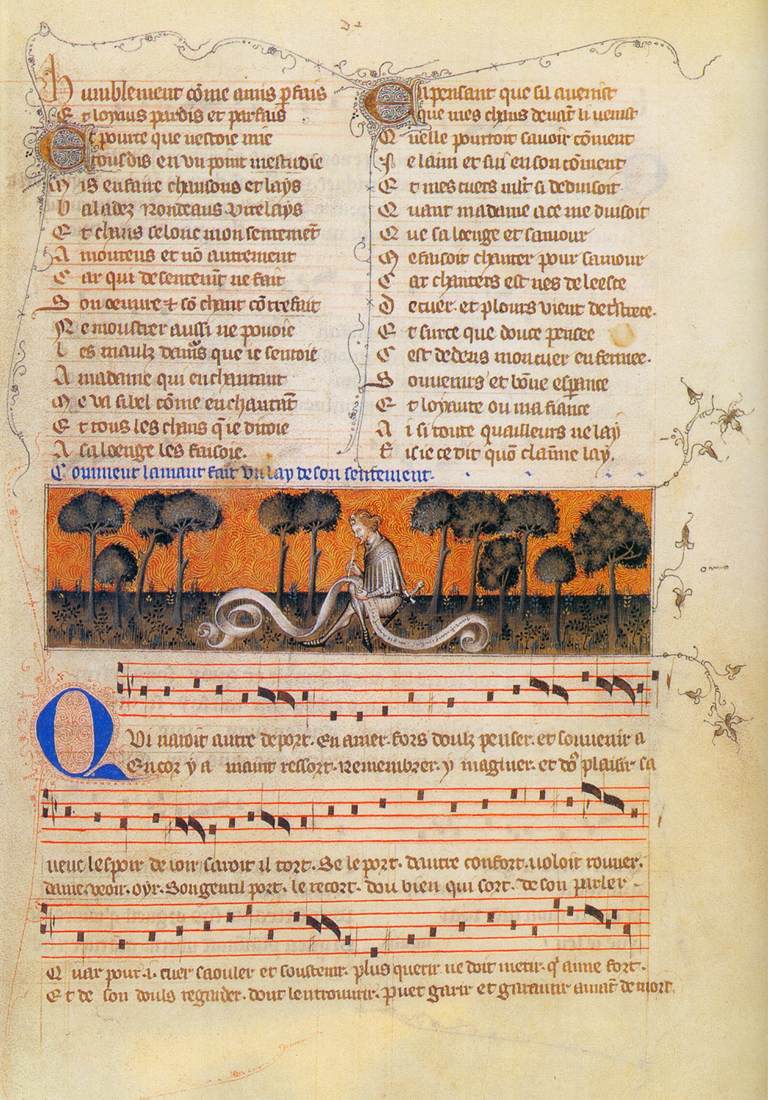 Humblement cõme amis p̃fais
Et loyaus pardis et parfais
Et pource que nestoie mie
Tousdis en vn point mestudie
Mis en faire chansons et lays
Baladez Rondeaus virelays
Et chans selonc mon sentemẽt
Amoureus et nõ autrement
Car qui de sentemẽt ne fait
Son oeuure et sõ chant cõtrefait
Ne moustrer aussi ne pouoie
Les maulz que ie sentoie
A madame qui en chantant
Me va si bel cõme enchantãt
Et tous les chans q̃ ie ditoie
A sa loenge les faisoie.
En pensant que sil auenist
Que mes chans deuãt li venist
Quelle pourroit sauoir cõment
Je laim et sui en son cõment
Et mes cuers mlt̃ si deduisoit
Quant madame a ce me duisoit
Que sa loenge et samour
Me faisoit chanter pour samour
Car chanters est nes de leesce
De cuer. et plours vient de tristece.
Et surce que douce pensee
Cest dedens mon cuer enfermee.
Souuenirs et bõne esp̃ance
Et loyaute ou ma fiance
Ai si toute quailleurs ne lay
Fis ie ce dit quõ claime lay.
Comment lamant fait vn lay de son sentement.
Qui naroit autre deport. En amer. fors doulz penser. et souuenir a
Encor y a maint ressort. Remembrer. ymaginer. et dõ plaisir sa
uenc lespoir de ioir. saroit il tort. Se le port. dautre confort. voloit rouuer.
dame veoir. oyr. Son gentil port. le recort. dou bien qui sort. de son parler
Quar pour .i. cuer saouler et soustenir. plus querir ne doit merir. q̃ aime fort.
Et de son doulz regarder. dont lentrouurir. puet garir et garantir amãt de mort.